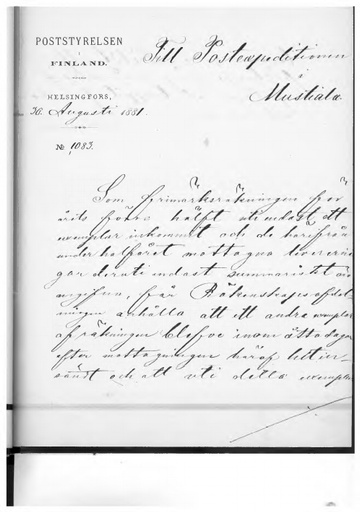 POSTSTYRELSEN
i
FINLAND.
HELSINGFORS,
30 Augusti 1881.
№ 1083.
Till Postexpeditionen
i
Mustiala
Som frimärksräkningen för
årets förra hälft endast ett
exemplar inkommit och de härifrån
under halfåret mottagna
endast summariskt
angifna, får Räkenskapsafdel-
ningen anhålla att ett andra exemplar
af räkningen blefve inom åtta dagar
efter mottagningen häraf hitin-
sändt och att uti detta exemplar